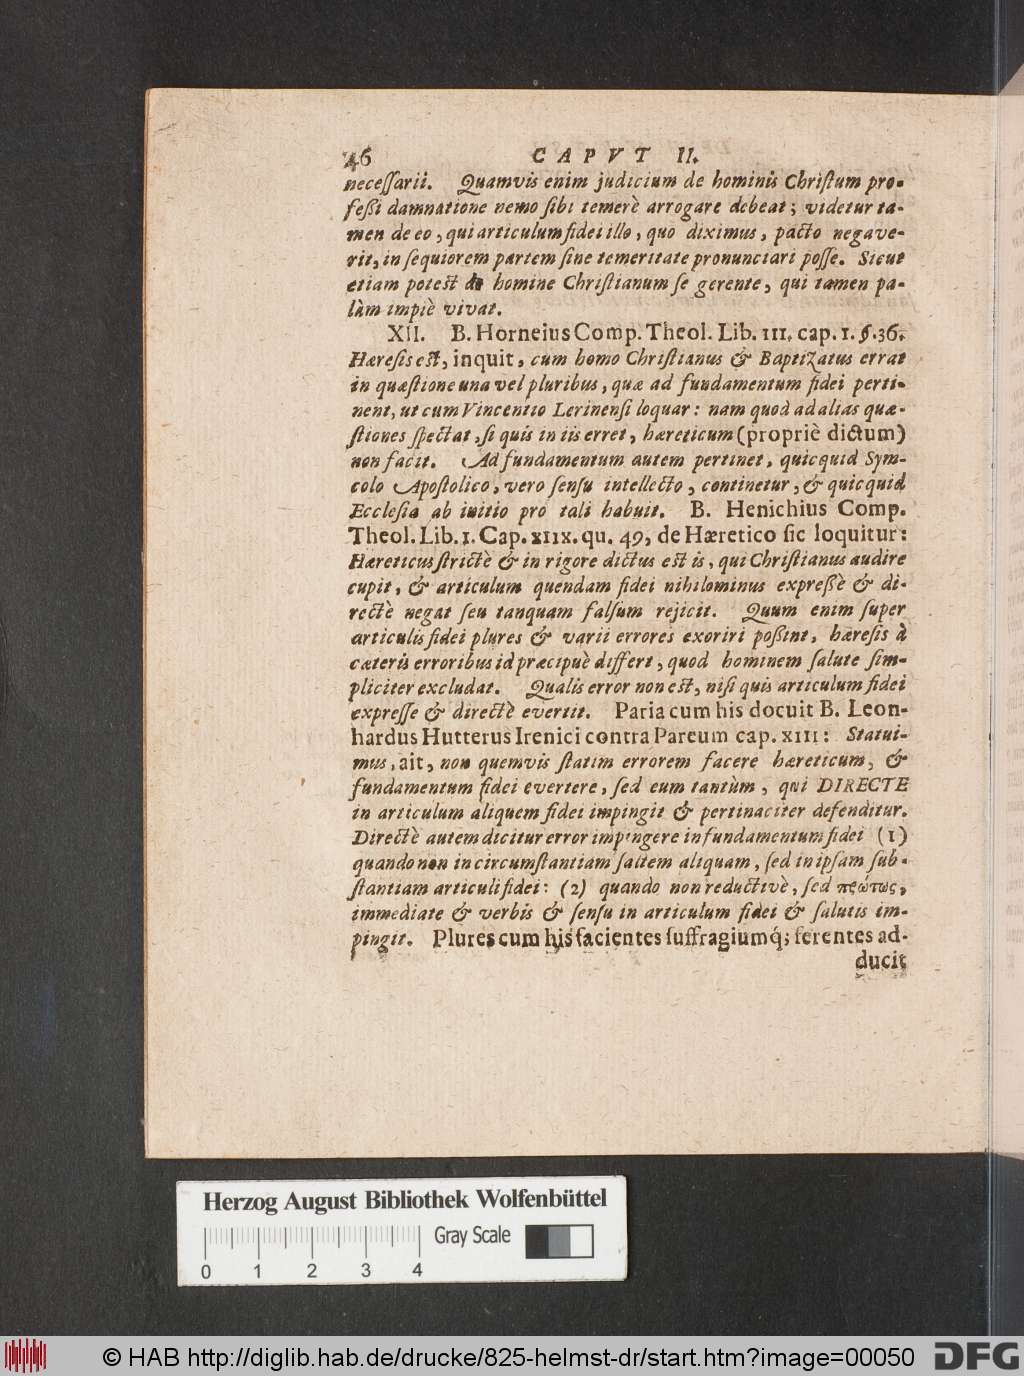 46 CAPVT II.
neceſſarii. Quamvis enim judicium de hominis Chriſtum pro-
feßi damnatione nemo ſibi temerè arrogare debeat; videtur ta-
men de eo, qui articulum fidei illo, quo diximus, pacto negave-
rit, in ſequiorem partem ſine temeritate pronunciari poſſe. Sicut
etiam potest de homine Chriſtianum ſe gerente, qui tamen pa-
làm impiè vivat.
XII. B. Horneius Comp. Theol. Lib. III. cap. 1. §. 36.
Hæreſis est, inquit, cum homo Chriſtianus & Baptizatus errat
in quæſtione una vel pluribus, quæ ad fundamentum fidei perti-
nent, ut cum Vincentio Lerinenſi loquar: nam quod ad alias quæ-
ſtiones ſpectat, ſi quis in iis erret, hæreticum (propriè dictum)
non facit. Ad fundamentum autem pertinet, quicquid Sym-
colo Apoſtolico, vero ſenſu intellecto, continetur, & quicquid
Eccleſia ab initio pro tali habuit. B. Henichius Comp.
Theol. Lib. I. Cap. XIIX. qu. 49, de Hæretico ſic loquitur:
Hæreticus ſtrictè & in rigore dictus est is, qui Chriſtianus audire
cupit, & articulum quendam fidei nihilominus expreßè & di-
rectè negat ſeu tanquam falſum rejicit. Quum enim ſuper
articulis fidei plures & varii errores exoriri poßint, hæreſis à
cæteris erroribus id præcipuè differt, quod hominem ſalute ſim-
pliciter excludat. Qualis error non est, niſi quis articulum fidei
expreſſe & directè evertit. Paria cum his docuit B. Leon-
hardus Hutterus Irenici contra Pareum cap. XIII: Statui-
mus, ait, non quemvis ſtatim errorem facere hæreticum, &
fundamentum fidei evertere, ſed eum tantùm, qui DIRECTE
in articulum aliquem fidei impingit & pertinaciter defenditur.
Directè autem dicitur error impingere in fundamentum fidei (1)
quando non in circumſtantiam ſaltem aliquam, ſed in ipſam ſub-
ſtantiam articuli fidei: (2) quando non reductivè, ſed πρώτως,
immediate & verbis & ſenſu in articulum fidei & ſalutis im-
pingit. Plures cum his facientes ſuffragiumq́; ferentes ad-
ducit
Herzog August Bibliothek Wolfenbüttel
Gray Scale
0 1 2 3 4
© HAB http://diglib.hab.de/drucke/825-helmst-dr/start.htm?image=00050 DFG